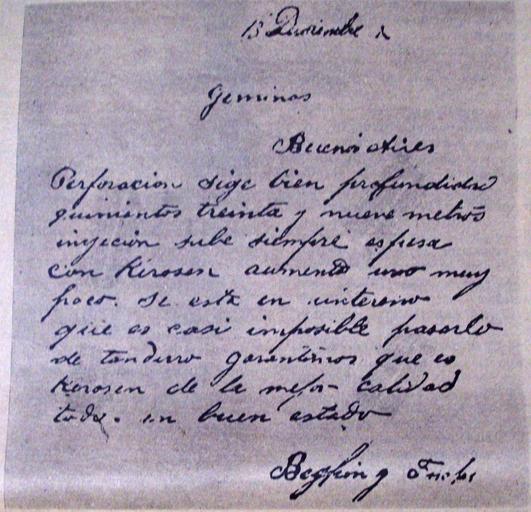 13 Diciembre
Geminas
Buenos Aires
Perforacion sige bien profundidad
quinientos treinta y nueve metros
inyeción sube siempre espesa
con Kerosen aumento uno muy
poco. se esta en un tereno
que es casi imposible pasarlo
de tan duro garantimos que es
Kerosen de la mejor calidad
todo. en buen estado
Beghin y Fuchs